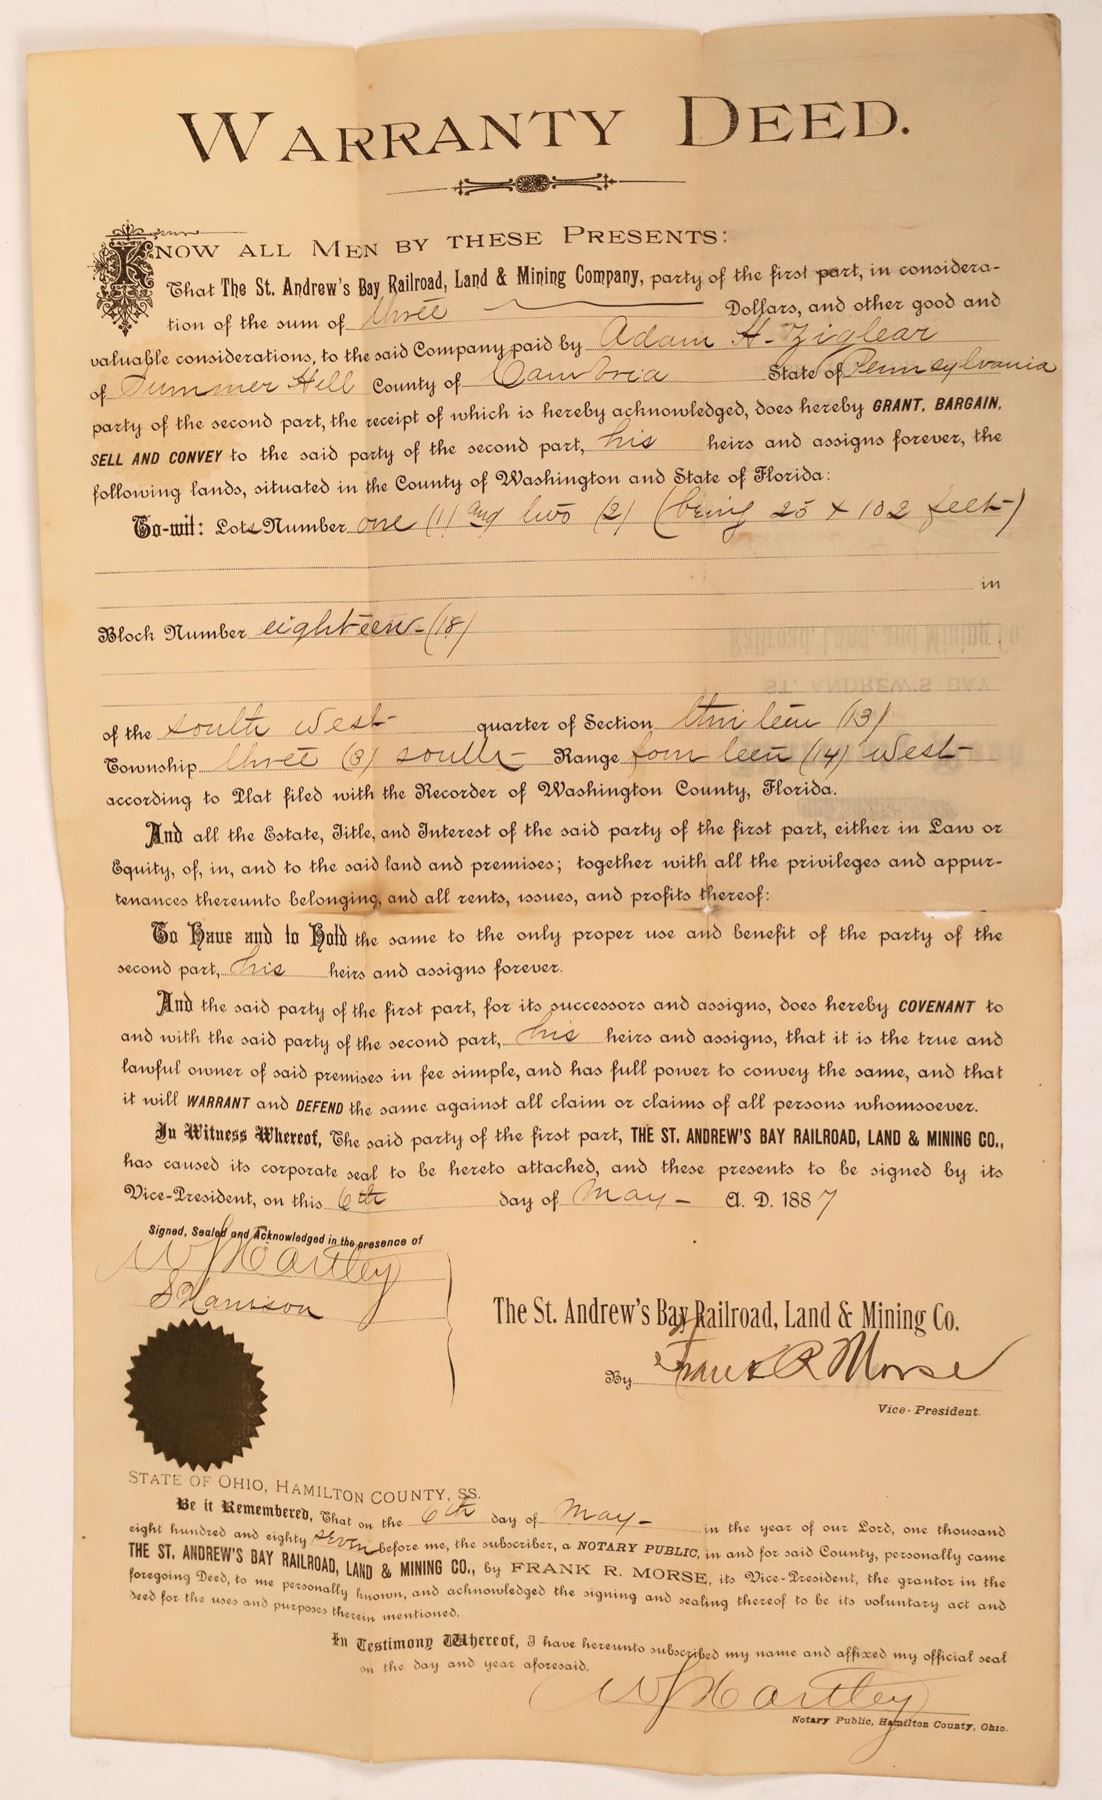 WARRANTY DEED.
KNOW ALL MEN BY THESE PRESENTS:
That The St. Andrew's Bay Railroad, Land & Mining Company, party of the first part, in considera-
tion of the sum of three Dollars, and other good and
valuable considerations, to the said Company paid by Adam H. Ziglear
of Summer Hill County of Cambria State of Pennsylvania
party of the second part, the receipt of which is hereby acknowledged, does hereby GRANT, BARGAIN,
SELL AND CONVEY to the said party of the second part, his heirs and assigns forever, the
following lands, situated in the County of Washington and State of Florida:
To-wit: Lots Number one (1) and two (2) (being 25 x 102 feet)
in
Block Number eighteen (18)
of the south west quarter of Section thirteen (13)
Township three (3) south Range fourteen (14) west
according to Plat filed with the Recorder of Washington County, Florida.
And all the Estate, Title, and Interest of the said party of the first part, either in Law or
Equity, of, in, and to the said land and premises; together with all the privileges and appur-
tenances thereunto belonging, and all rents, issues, and profits thereof:
To Have and to Hold the same to the only proper use and benefit of the party of the
second part, his heirs and assigns forever.
And the said party of the first part, for its successors and assigns, does hereby COVENANT to
and with the said party of the second part, his heirs and assigns, that it is the true and
lawful owner of said premises in fee simple, and has full power to convey the same, and that
it will WARRANT and DEFEND the same against all claim or claims of all persons whomsoever.
In Witness Whereof, The said party of the first part, THE ST. ANDREW'S BAY RAILROAD, LAND & MINING CO.,
has caused its corporate seal to be hereto attached, and these presents to be signed by its
Vice-President, on this 6th day of May A. D. 1887
Signed, Sealed and Acknowledged in the presence of
W J Hartley
S Harrison
The St. Andrew's Bay Railroad, Land & Mining Co.
By Frank R Morse
Vice-President.
STATE OF OHIO, HAMILTON COUNTY, SS.
Be it Remembered, That on the 6th day of May in the year of our Lord, one thousand
eight hundred and eighty seven before me, the subscriber, a NOTARY PUBLIC, in and for said County, personally came
THE ST. ANDREW'S BAY RAILROAD, LAND & MINING CO., by FRANK R. MORSE, its Vice-President, the grantor in the
foregoing Deed, to me personally known, and acknowledged the signing and sealing thereof to be its voluntary act and
deed for the uses and purposes therein mentioned.
In Testimony Whereof, I have hereunto subscribed my name and affixed my official seal
on the day and year aforesaid.
W J Hartley
Notary Public, Hamilton County, Ohio.